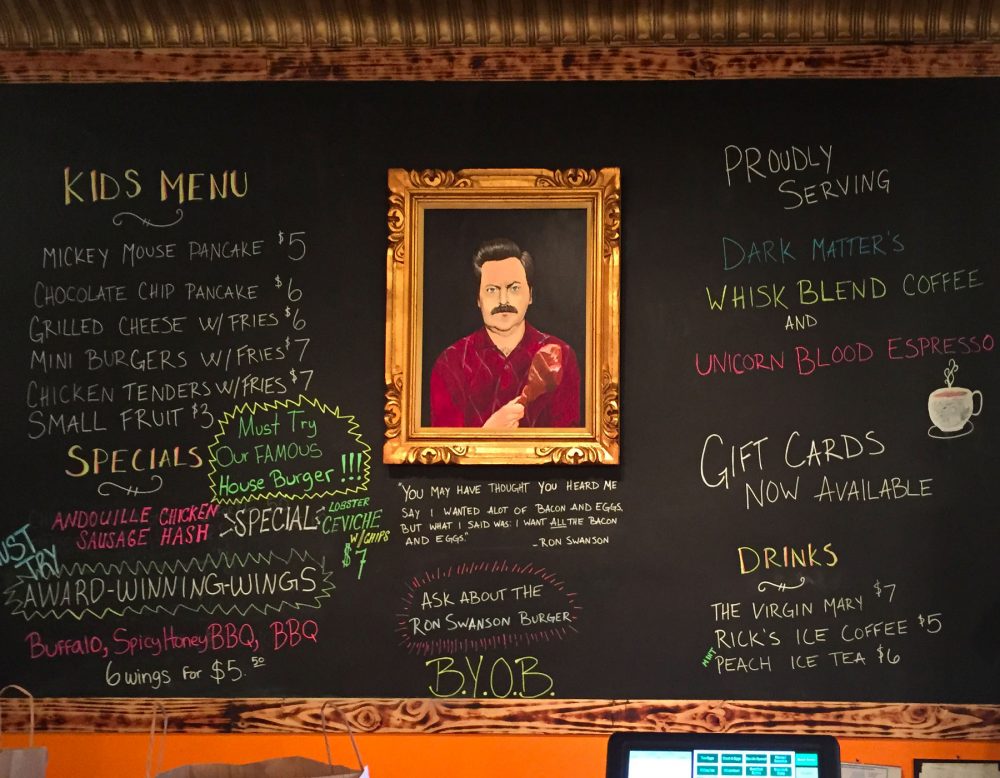 KIDS MENU
MICKEY MOUSE PANCAKE $5
CHOCOLATE CHIP PANCAKE $6
GRILLED CHEESE W/ FRIES $6
MINI BURGERS W/ FRIES $7
CHICKEN TENDERS W/ FRIES $7
SMALL FRUIT $3
MUST TRY
OUR FAMOUS
HOUSE BURGER !!!
SPECIALS
ANDOUILLE CHICKEN
SAUSAGE HASH
SPECIAL
LOBSTER
CEVICHE
W/ CHIPS
$7
MUST
TRY
AWARD-WINNING-WINGS
BUFFALO, SPICY HONEY BBQ, BBQ
6 WINGS FOR $5.50
"YOU MAY HAVE THOUGHT YOU HEARD ME
SAY I WANTED ALOT OF BACON AND EGGS,
BUT WHAT I SAID WAS: I WANT ALL THE BACON
AND EGGS."
- RON SWANSON
ASK ABOUT THE
RON SWANSON BURGER
B.Y.O.B.
PROUDLY
SERVING
DARK MATTER'S
WHISK BLEND COFFEE
AND
UNICORN BLOOD ESPRESSO
GIFT CARDS
NOW AVAILABLE
DRINKS
THE VIRGIN MARY $7
RICK'S ICE COFFEE $5
MINT PEACH ICE TEA $6